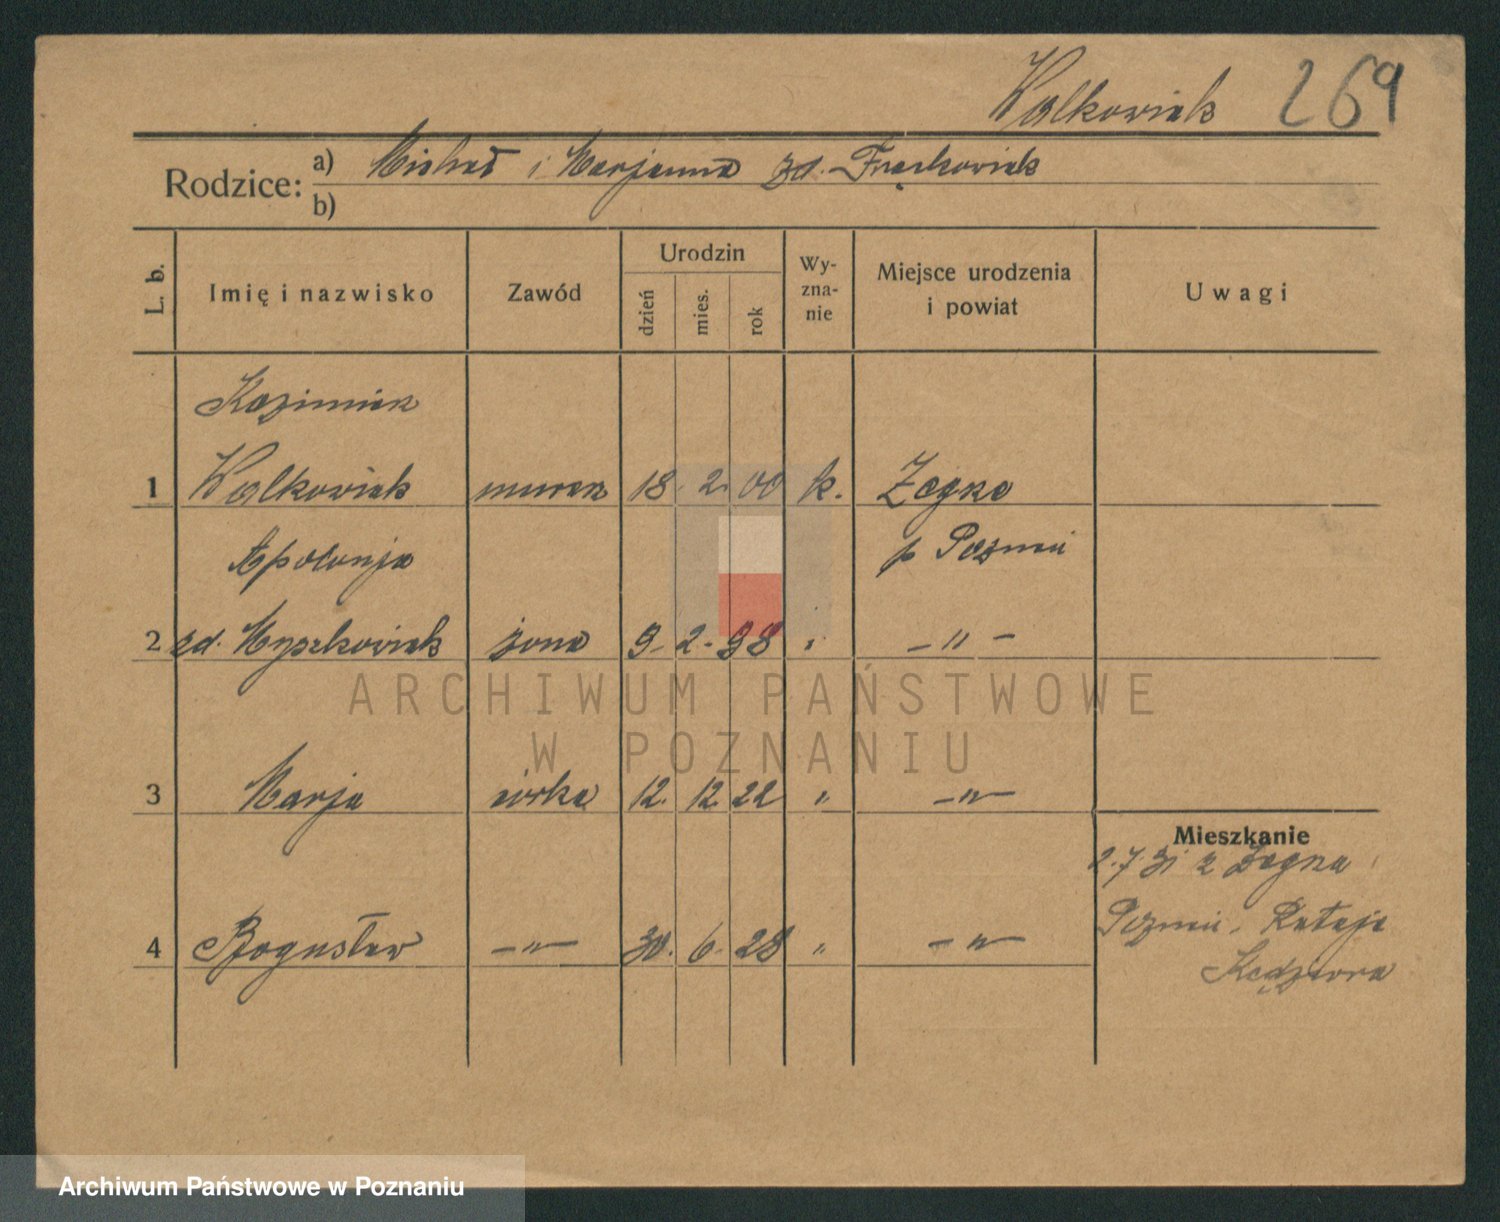 Walkowiak 269
Rodzice: a) Michał i Marjanna zd. Frąckowiak
b)
L. b. Imię i nazwisko Zawód Urodzin dzień mies. rok Wy-zna-nie Miejsce urodzenia i powiat Uwagi
Kazimierz
1 Walkowiak murarz 18. 2. 00 k. Żegrze
Apolonja p Poznań
2 zd. Myszkowiak żona 9. 2. 98 " — " —
3 Marja córka 12. 12. 22 " — " —
Mieszkanie
2.7.31 z Żegrza
Poznań, Rataje
4 Bogusław — " — 30. 6. 28 " — " —
Kędziora
ARCHIWUM PAŃSTWOWE
W POZNANIU
Archiwum Państwowe w Poznaniu